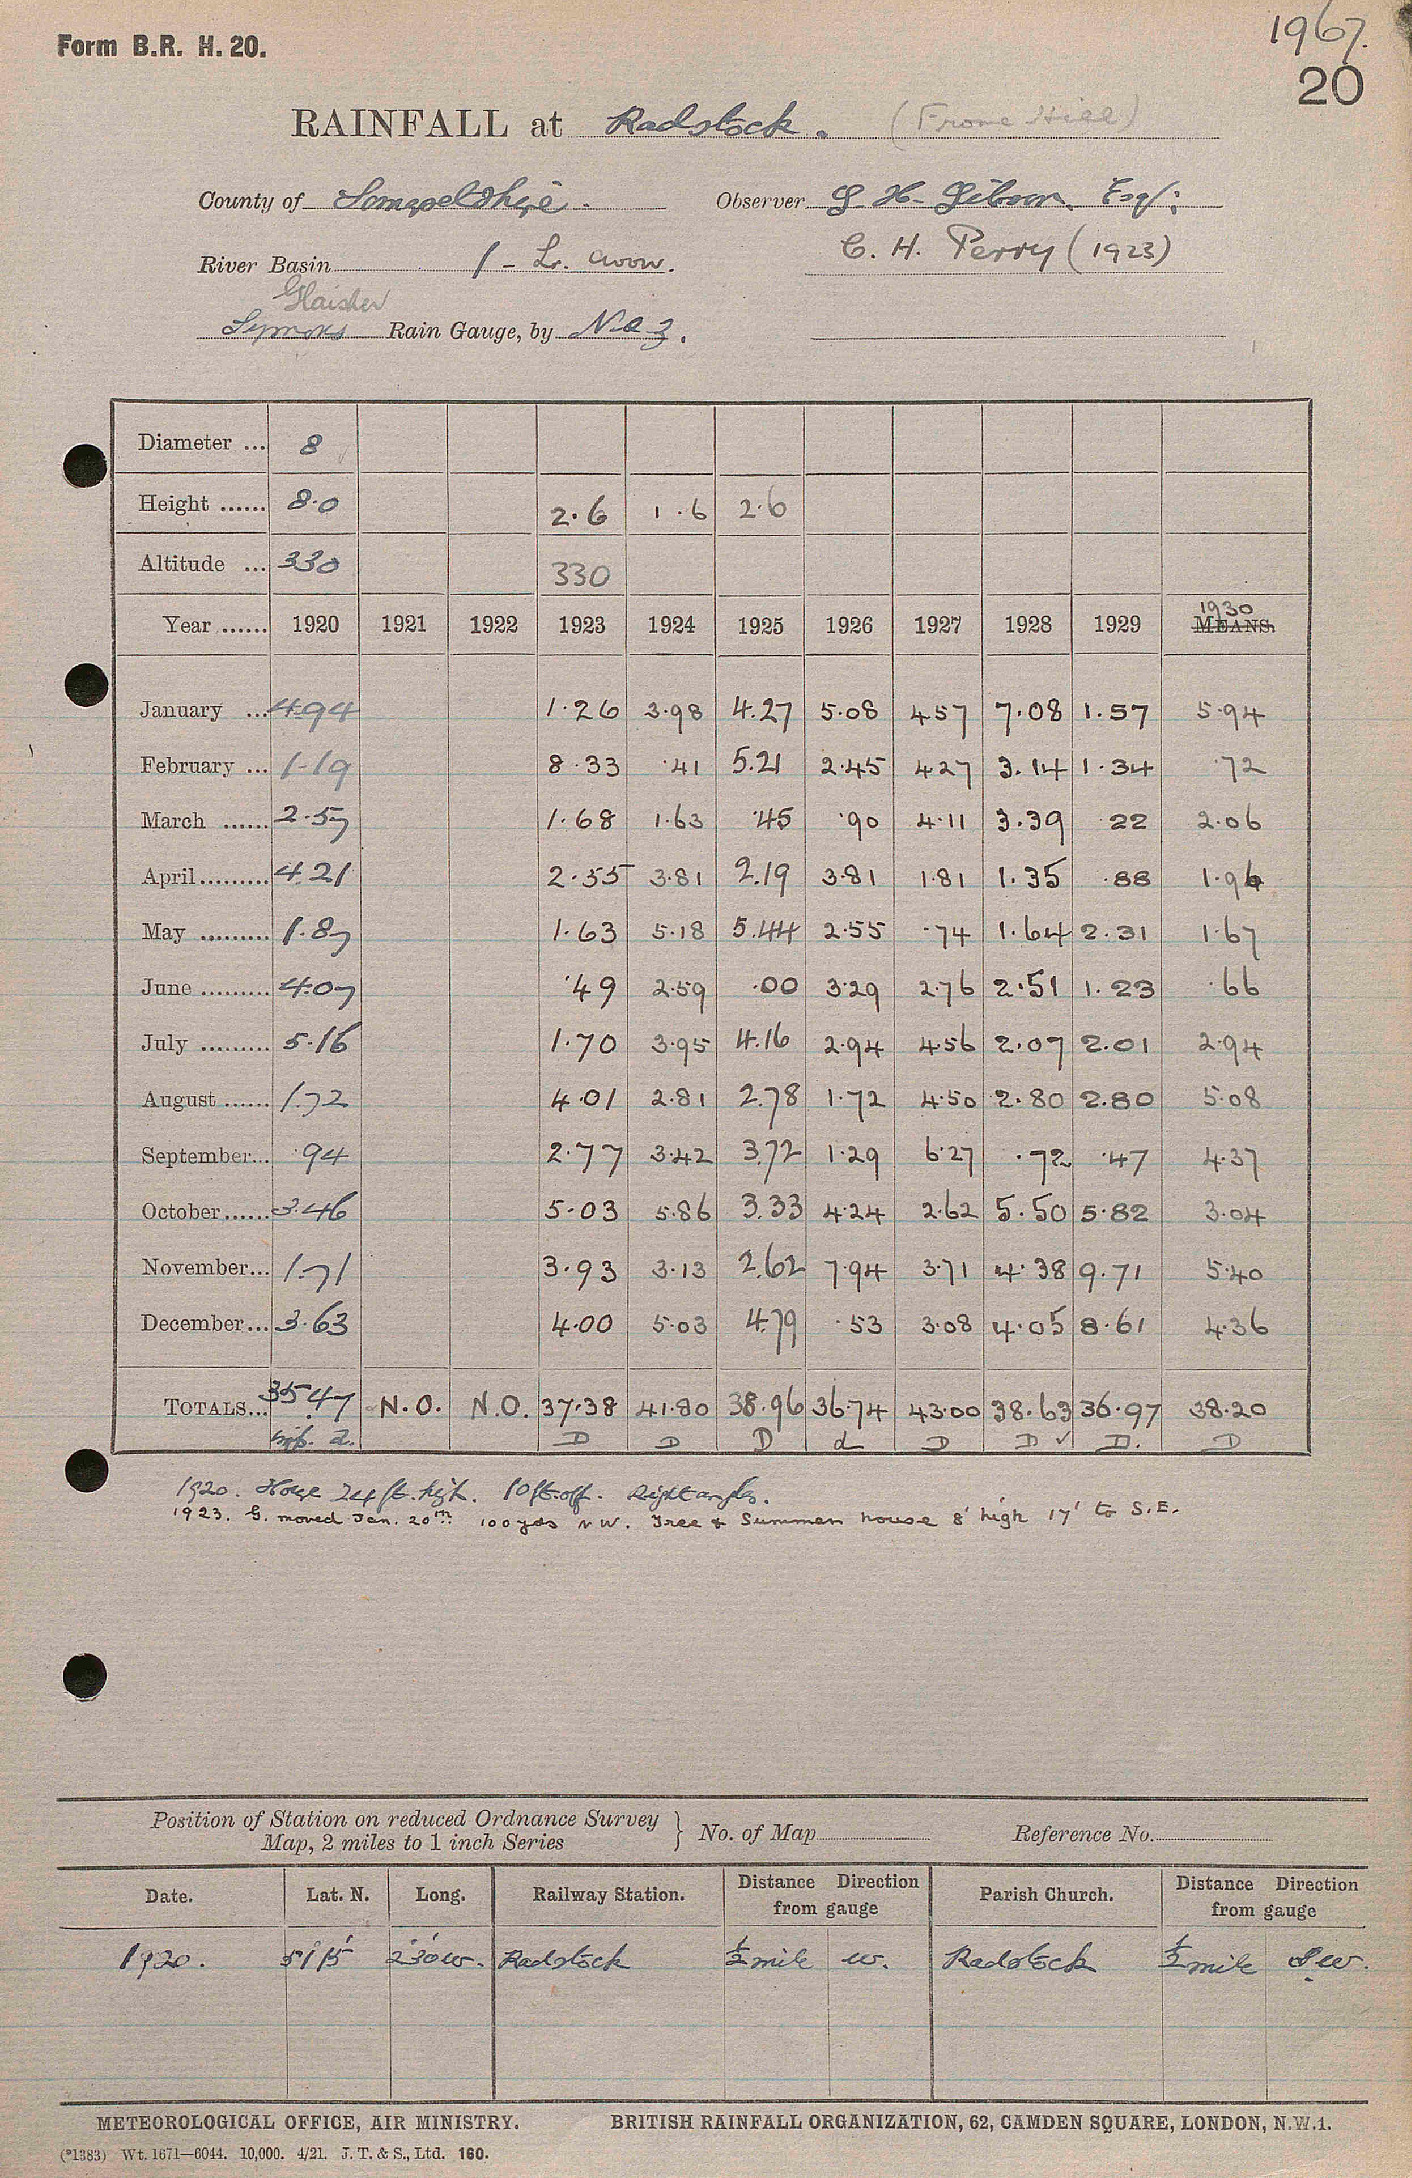 Form B.R. H. 20.
1967.
20
RAINFALL at Radstock. (Frome Hill)
County of Somersetshire. Observer G. H. Gibson. Esq;
River Basin 1 - Lr. Avon. C. H. Perry (1923)
Glaisher
Symons Rain Gauge, by N & Z.
Diameter ... 8
Height ...... 8·0 2·6 1·6 2·6
Altitude ... 330 330
Year ...... 1920 1921 1922 1923 1924 1925 1926 1927 1928 1929 1930 MEANS.
January ... 4.94 1·26 3·98 4.27 5·08 4.57 7·08 1·57 5·94
February ... 1·19 8·33 ·41 5.21 2·45 4·27 3·14 1·34 ·72
March ...... 2·57 1·68 1·63 ·45 ·90 4·11 3·39 ·22 2·06
April......... 4.21 2·55 3·81 2.19 3·81 1·81 1·35 ·88 1·96
May ......... 1·87 1·63 5·18 5.44 2·55 ·74 1·64 2·31 1·67
June ......... 4·07 ·49 2·59 ·00 3·29 2·76 2·51 1·23 ·66
July ......... 5·16 1·70 3·95 4.16 2·94 4·56 2·07 2·01 2·94
August ...... 1.72 4·01 2·81 2.78 1·72 4·50 2·80 2·80 5·08
September... ·94 2·77 3·42 3.72 1·29 6·27 ·72 ·47 4·37
October...... 3·46 5·03 5·86 3.33 4·24 2·62 5·50 5·82 3·04
November... 1·71 3·93 3·13 2.62 7·94 3·71 4·38 9·71 5·40
December... 3·63 4·00 5·03 4.79 ·53 3·08 4·05 8·61 4·36
TOTALS... 35.47 N.O. N.O. 37·38 41·80 38·96 36·74 43·00 38·63 36·97 38·20
D D D d D D ✓ D. D
1920. House 24 ft. high. 10 ft. off. Right angles.
1923. G. moved Jan. 20th 100 yds NW. Tree & Summer house 8' high 17' to S.E.
Position of Station on reduced Ordnance Survey
Map, 2 miles to 1 inch Series } No. of Map Reference No.
Date. Lat. N. Long. Railway Station. Distance Direction from gauge Parish Church. Distance Direction from gauge
1920. 51°15' 2°30'W. Radstock ½ mile W. Radstock ½ mile SW.
METEOROLOGICAL OFFICE, AIR MINISTRY. BRITISH RAINFALL ORGANIZATION, 62, CAMDEN SQUARE, LONDON, N.W.1.
(*1383) Wt. 1671—6044. 10,000. 4/21. J. T. & S., Ltd. 160.